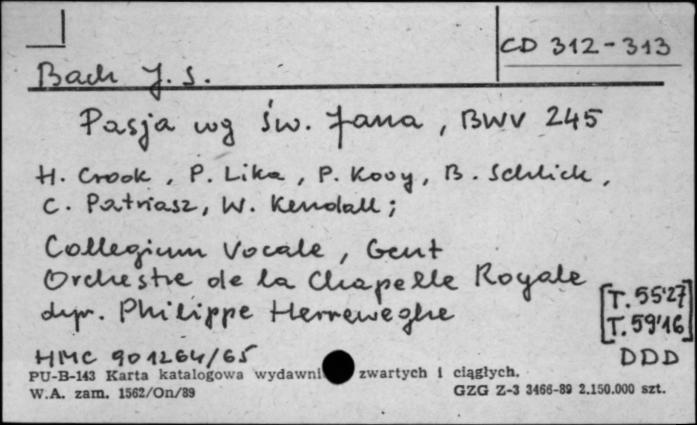 CD 312-313
Bach J. S.
Pasja wg św. Jana, BWV 245
H. Crook, P. Lika, P. Kooy, B. Schlick,
C. Patriasz, W. Kendall;
Collegium Vocale, Gent
Orchestre de la Chapelle Royale
dyr. Philippe Herreweghe
[T. 55'27]
[T. 59'16]
HMC 901264/65
DDD
PU-B-143 Karta katalogowa wydawni zwartych i ciągłych.
W.A. zam. 1562/On/89 GZG Z-3 3466-89 2.150.000 szt.